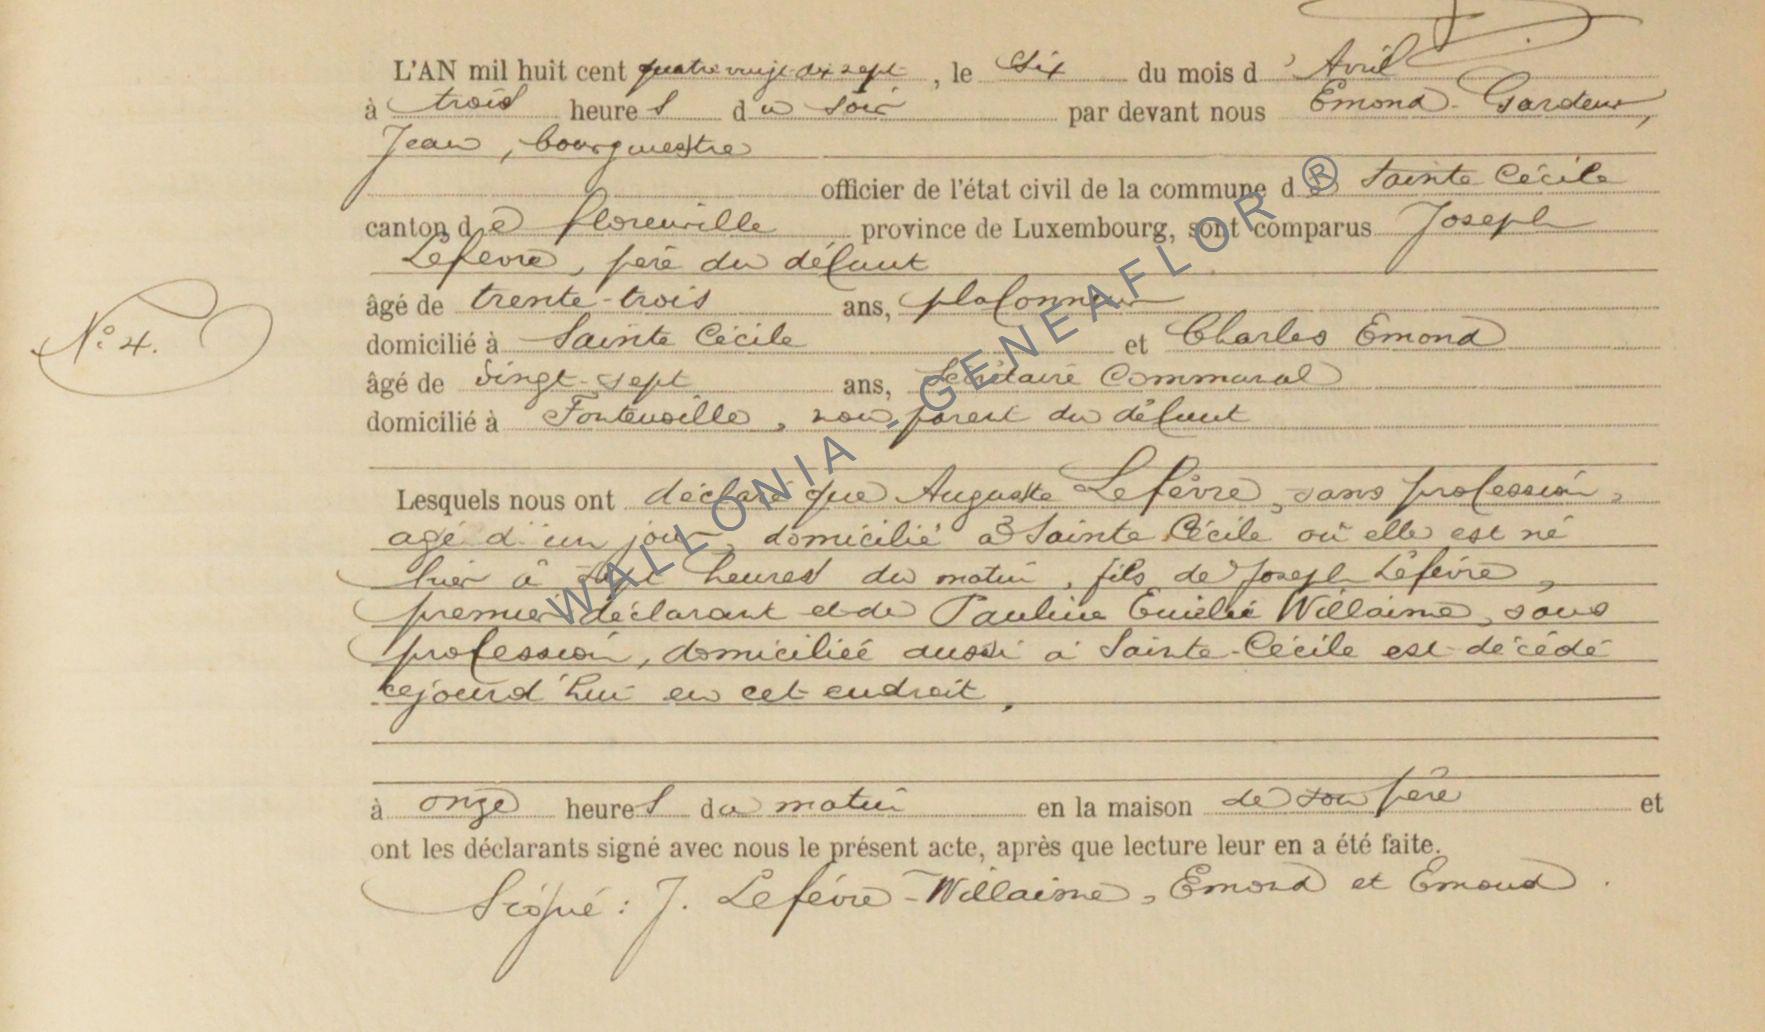 L'AN mil huit cent quatre vingt dix sept, le Six du mois d'Avril
à trois heures du soir par devant nous Emond-Gardeur,
Jean, bourgmestre
officier de l'état civil de la commune de Sainte Cécile
canton de Florenville province de Luxembourg, sont comparus Joseph
Lefèvre, père du défunt
âgé de trente-trois ans, plafonneur
domicilié à Sainte Cécile et Charles Emond
N° 4.
âgé de vingt-sept ans, secrétaire communal
domicilié à Fontenoille, non parent du défunt
Lesquels nous ont déclaré que Auguste Lefèvre, sans profession,
agé d'un jour, domicilié à Sainte Cécile où elle est né
hier à sept heures du matin, fils de Joseph Lefèvre,
premier déclarant et de Pauline Emélie Willaime, sans
profession, domiciliée aussi à Sainte-Cécile est décédé
cejourd'hui en cet endroit,
à onze heures du matin en la maison de son père et
ont les déclarants signé avec nous le présent acte, après que lecture leur en a été faite.
Signé : J. Lefèvre-Willaime, Emond et Emond.
WALLONIA - GENEAFLOR ®